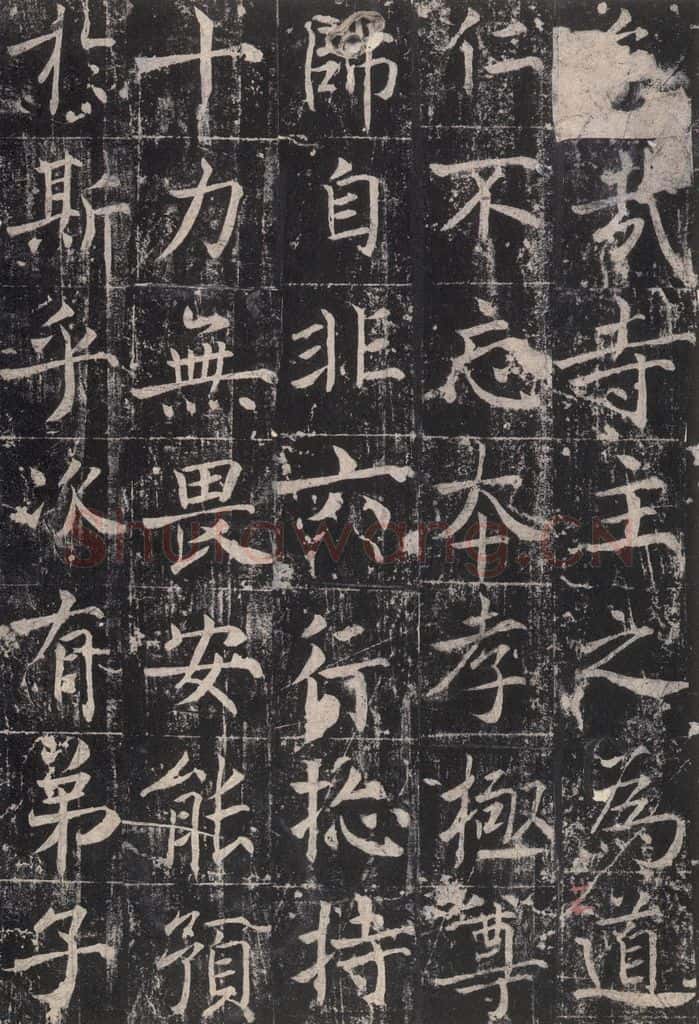 哉寺主之為道
仁不忘本孝極尊
師自非六行揔持
十力無畏安能預
於斯乎次有弟子
Shufawang.CN